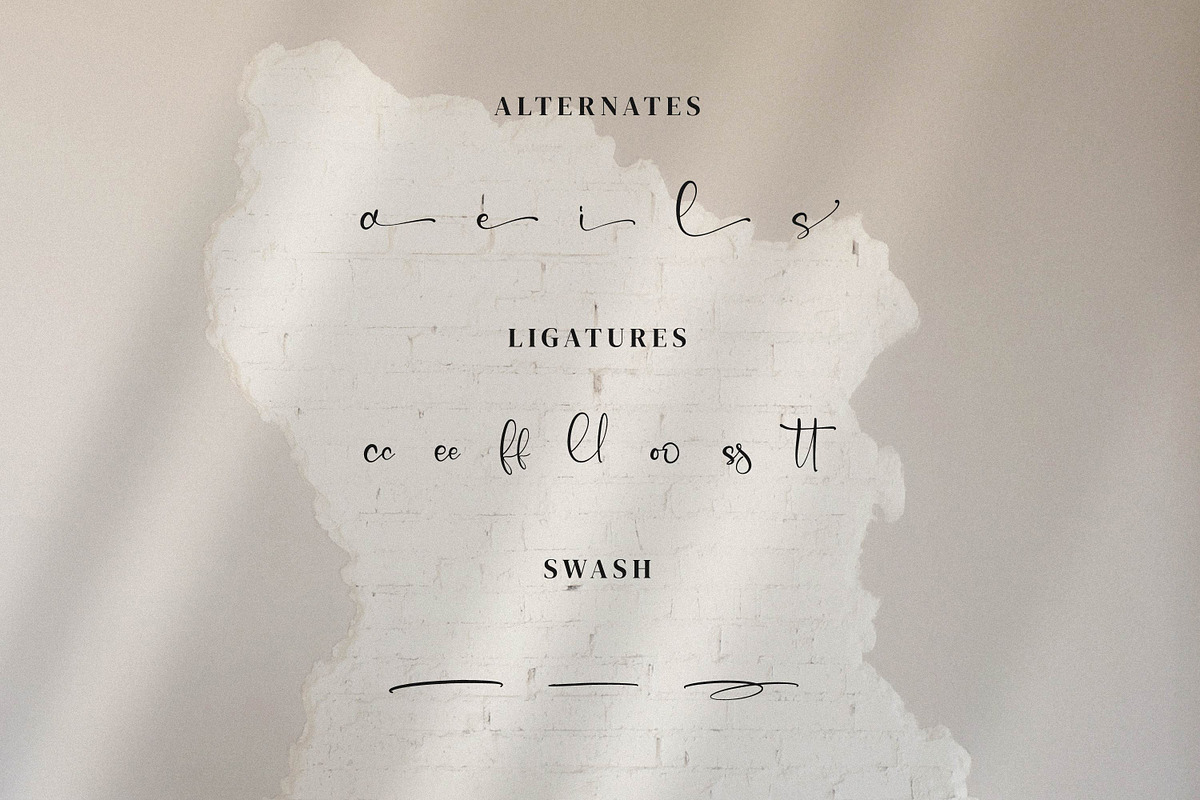 ALTERNATES
a e i l s
LIGATURES
cc ee ff ll oo ss tt
SWASH